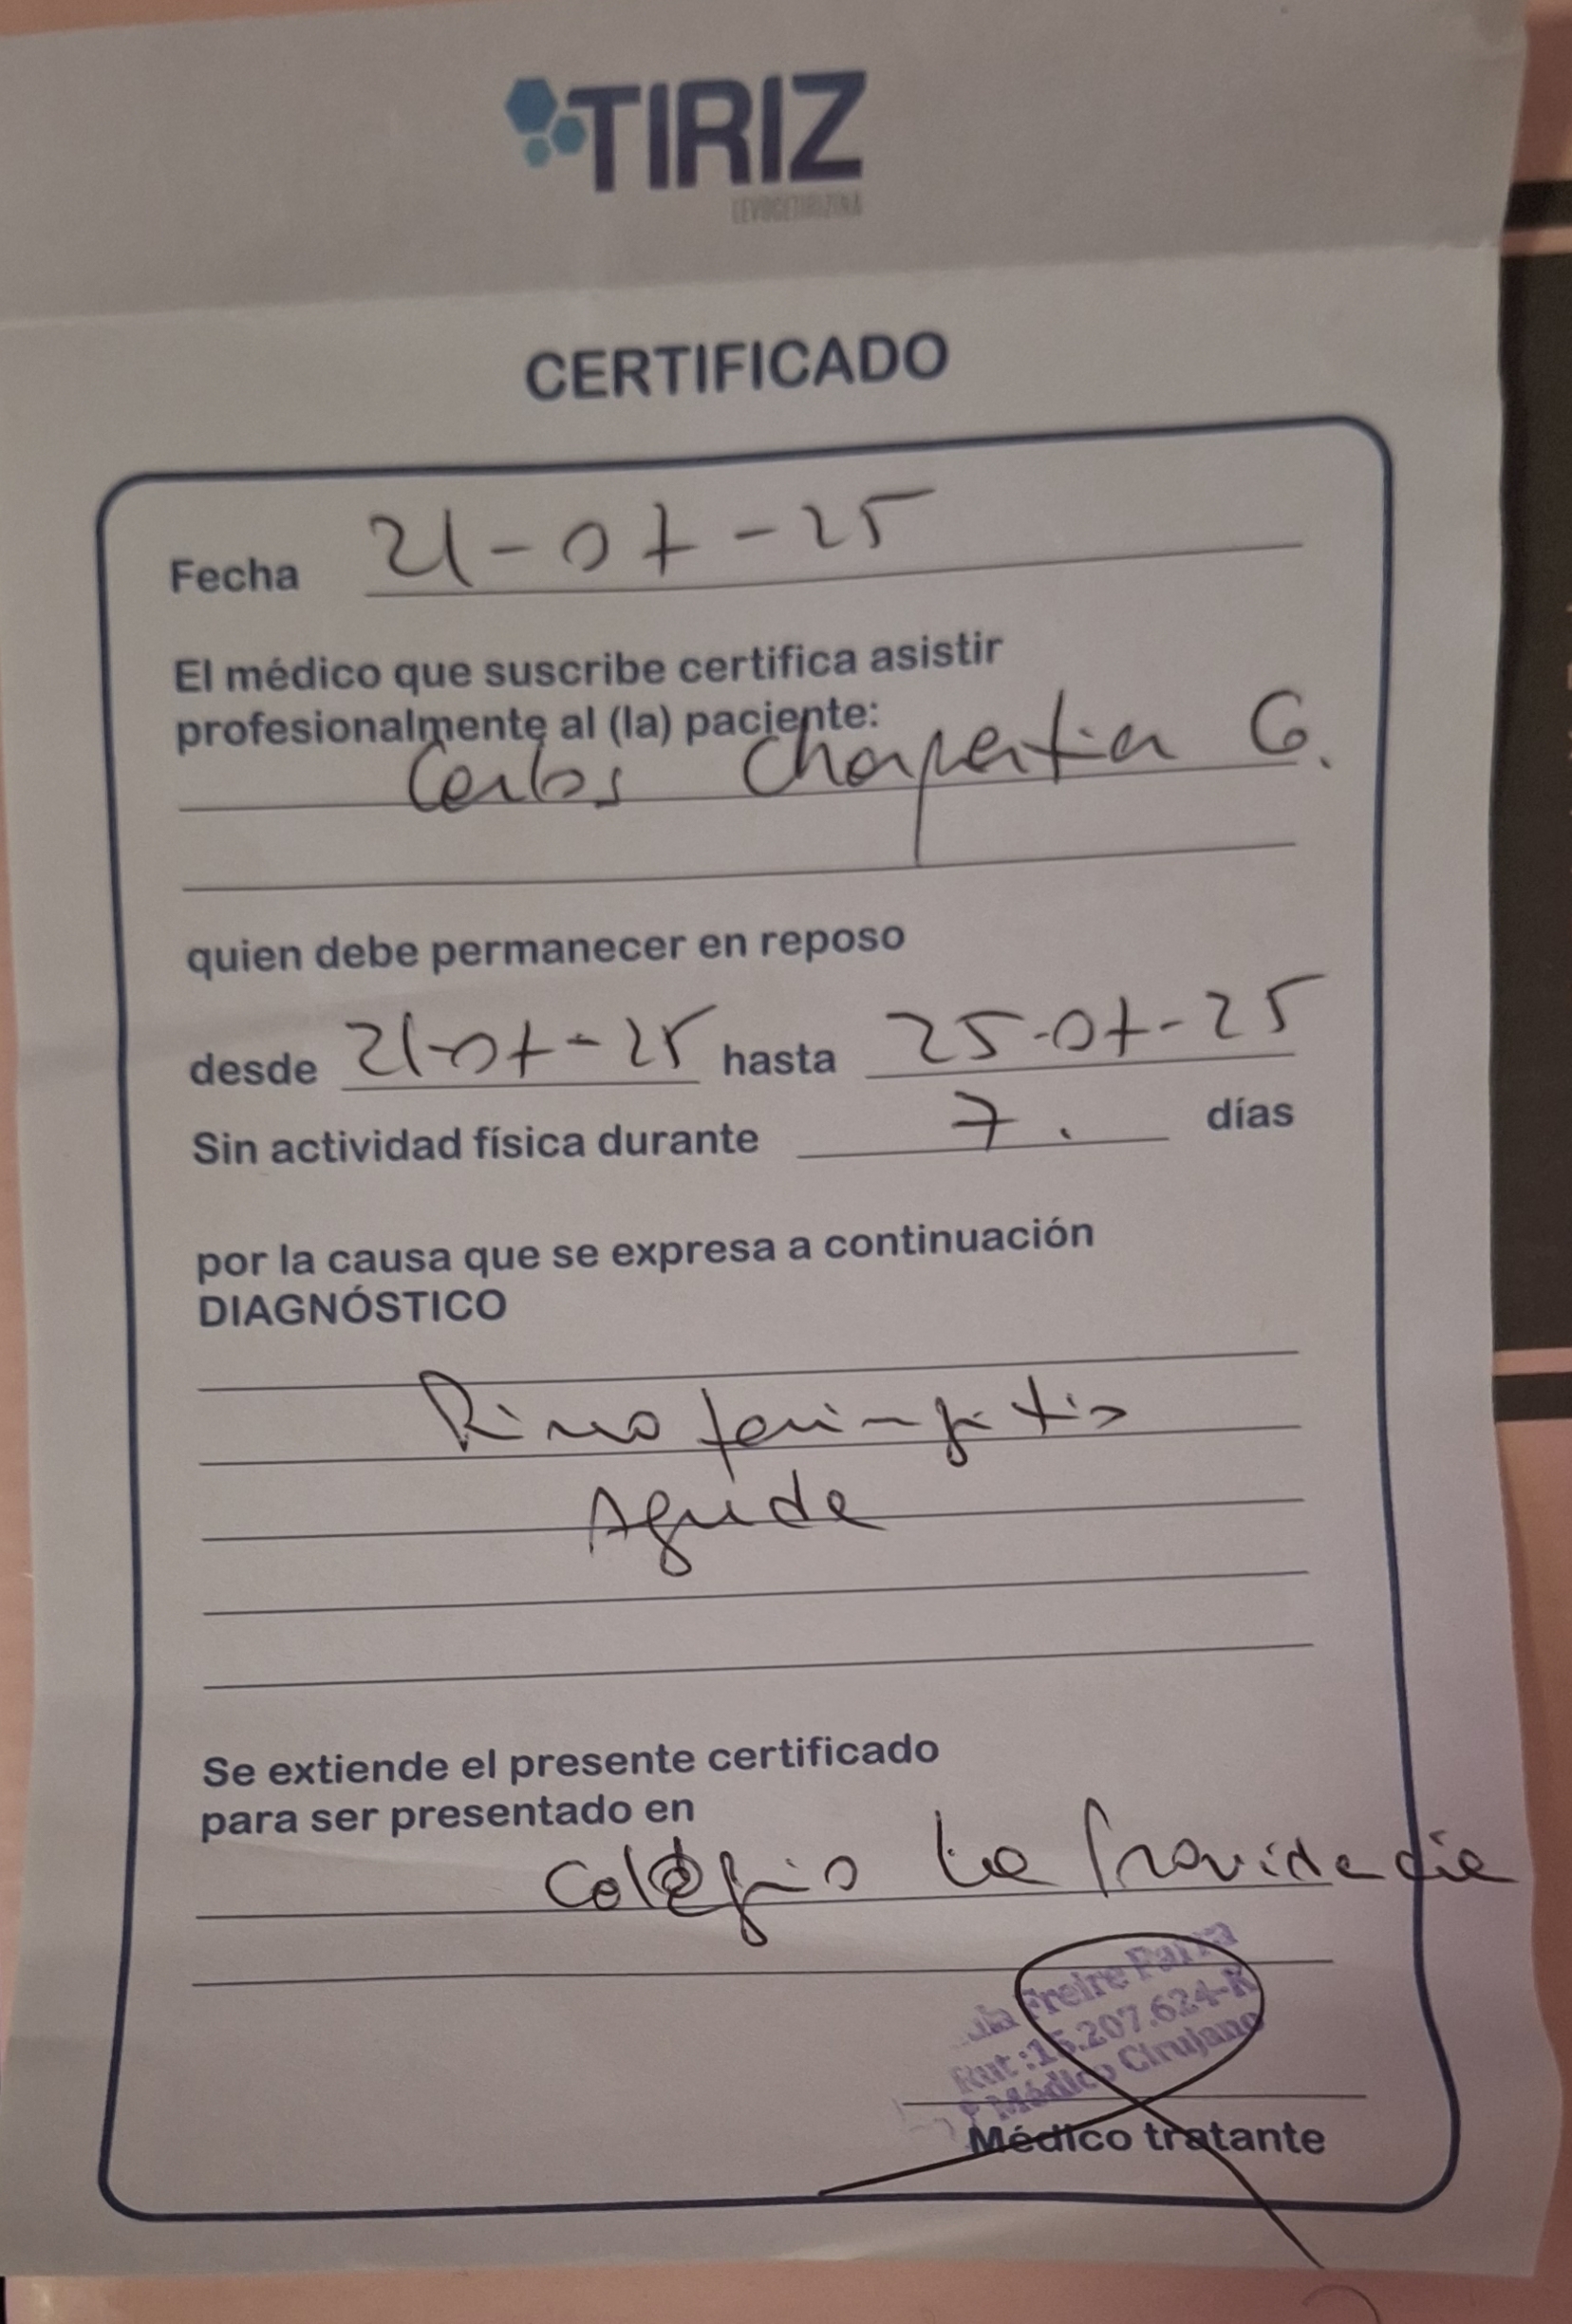 TIRIZ
LEVOCETIRIZINA
CERTIFICADO
Fecha 21-07-25
El médico que suscribe certifica asistir
profesionalmente al (la) paciente:
Carlos Charpentier G.
quien debe permanecer en reposo
desde 21-07-25 hasta 25-07-25
Sin actividad física durante 7. días
por la causa que se expresa a continuación
DIAGNÓSTICO
Rinofaringitis
Aguda
Se extiende el presente certificado
para ser presentado en
Colegio La Providencia
Freire Parra
Rut:15.207.624-K
Médico Cirujano
Médico tratante